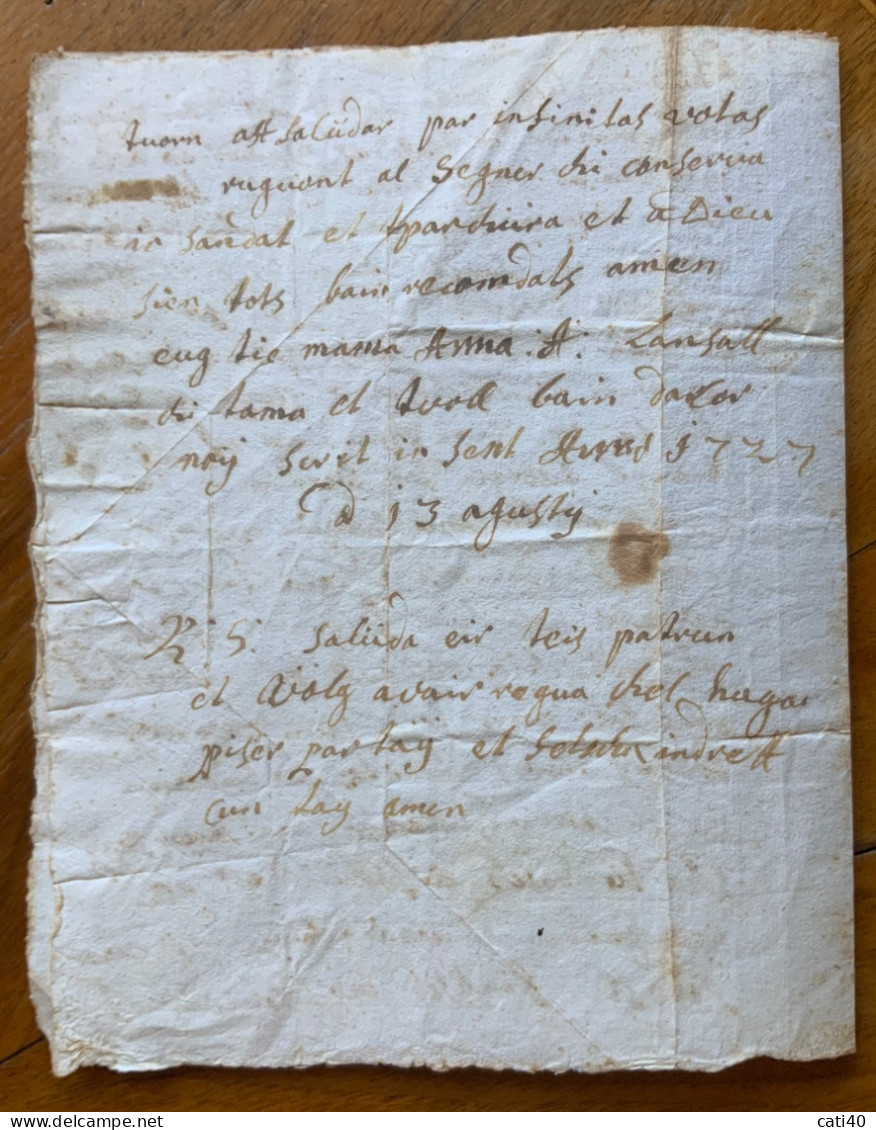 tuorn att salüdar par infinitas votas
ruguont al Segner chi conservia
in sandat et et a Dieu
sien tots bain recomdats amen
eug tie mama Anna: A: Lansall
chi tama et tvoll bain dalcor
noy scrit in Sent Anno 1727
d 13 agusty
P: S: salüda eir teis patrun
et völg avair rogua chel haga
piser par tay et indrett
cun tay amen
cati40